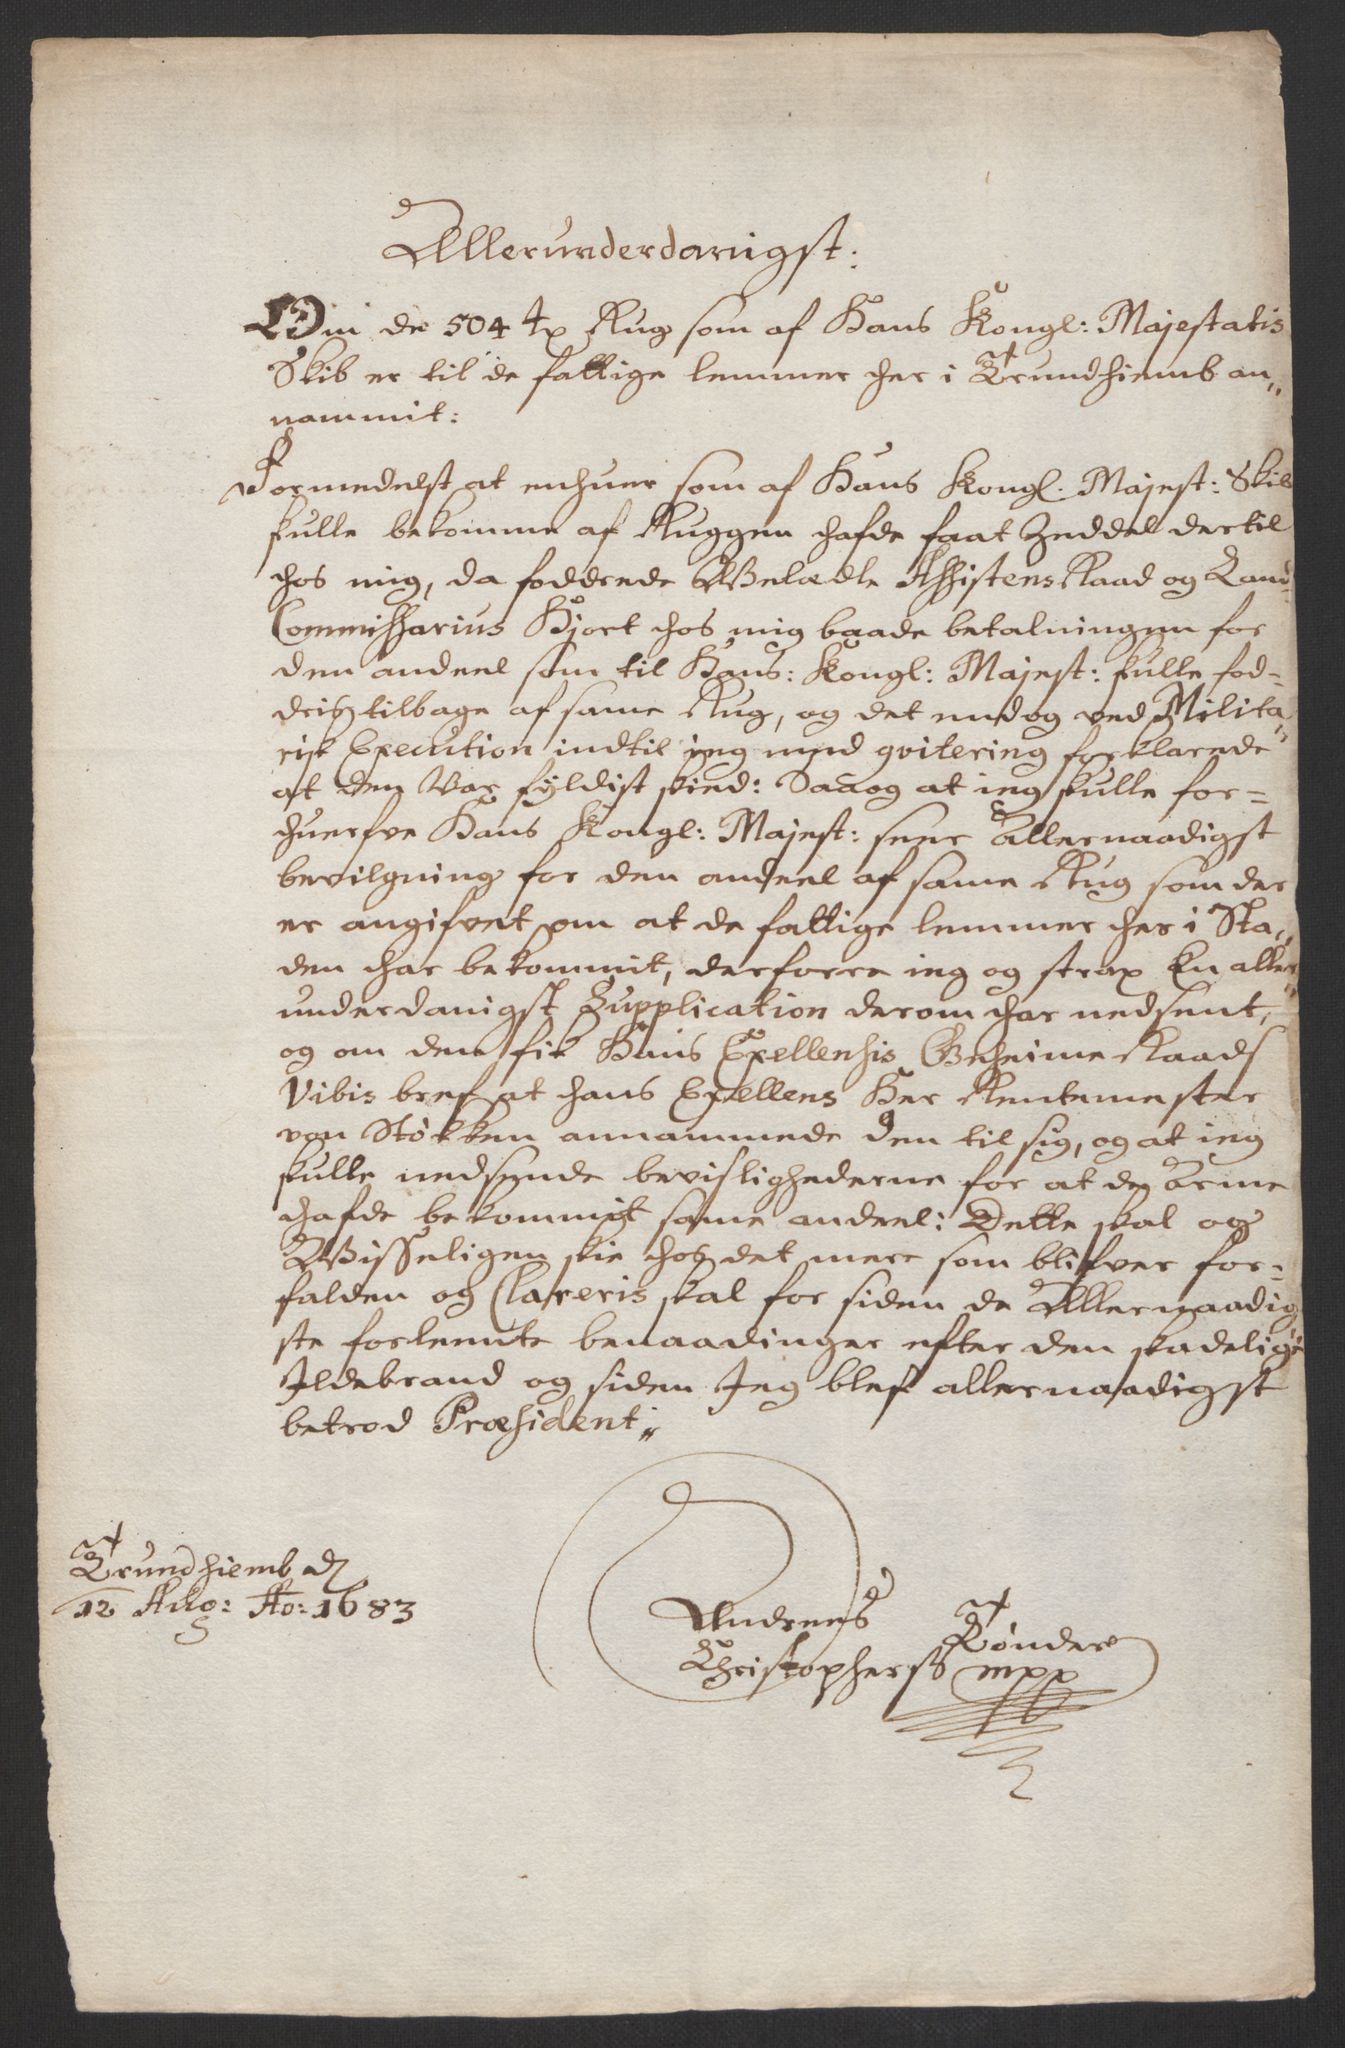 Allerunderdanigst:
Om de 504 tr Rug som af Hans Kongl: Majestatis
Skib er til de fattige lemmer her i Trundhiemb an„
nammit:
Formedelst at enhuer som af Hans Kongl: Majest: Skib
skulle bekomme af Ruggen hafde faat Zeddel dertil
hos mig, da fodrede Welædle Assistens Raad og Land
Commissarius Hjort hos mig baade betalningen for
den andeel som til Hans: Kongl: Majest: skulle fod-
dris tilbage af same Rug, og det endog ved Milita„
risk Execution indtil ieg med qvitering forklarede
at den Var fyldist skied: Saaog at ieg skulle for-
huerfve Hans Kongl: Majest: seer Allernaadigst
bevilgning for den andeel af same Rug som der
er angifvet om at de fattige lemmer her i Sta„
den har bekommit, derforre ieg og strax En aller„
underdanigst Supplication derom har nedsent,
og om den fik Hans Exellensis Geheime Raads
Vibis bref at hans Exellens Her Rentemester
von Støkken annammede den til sig, og at ieg
skulle nedsende bevislighederne for at de Arme
hafde bekommit same andeel: Dette skal og
Wisseligen skie hos det mere som blifver for-
falden og Clareris skal for siden de Allernaadig
ste forlente benaadinger efter den skadelige
Ildebrand og siden Jeg blef allernaadigst
betrod Præsident„
Trundhiemb d
12 Aug: Ao: 1683
Andreas
Tønder
Christophers mpp